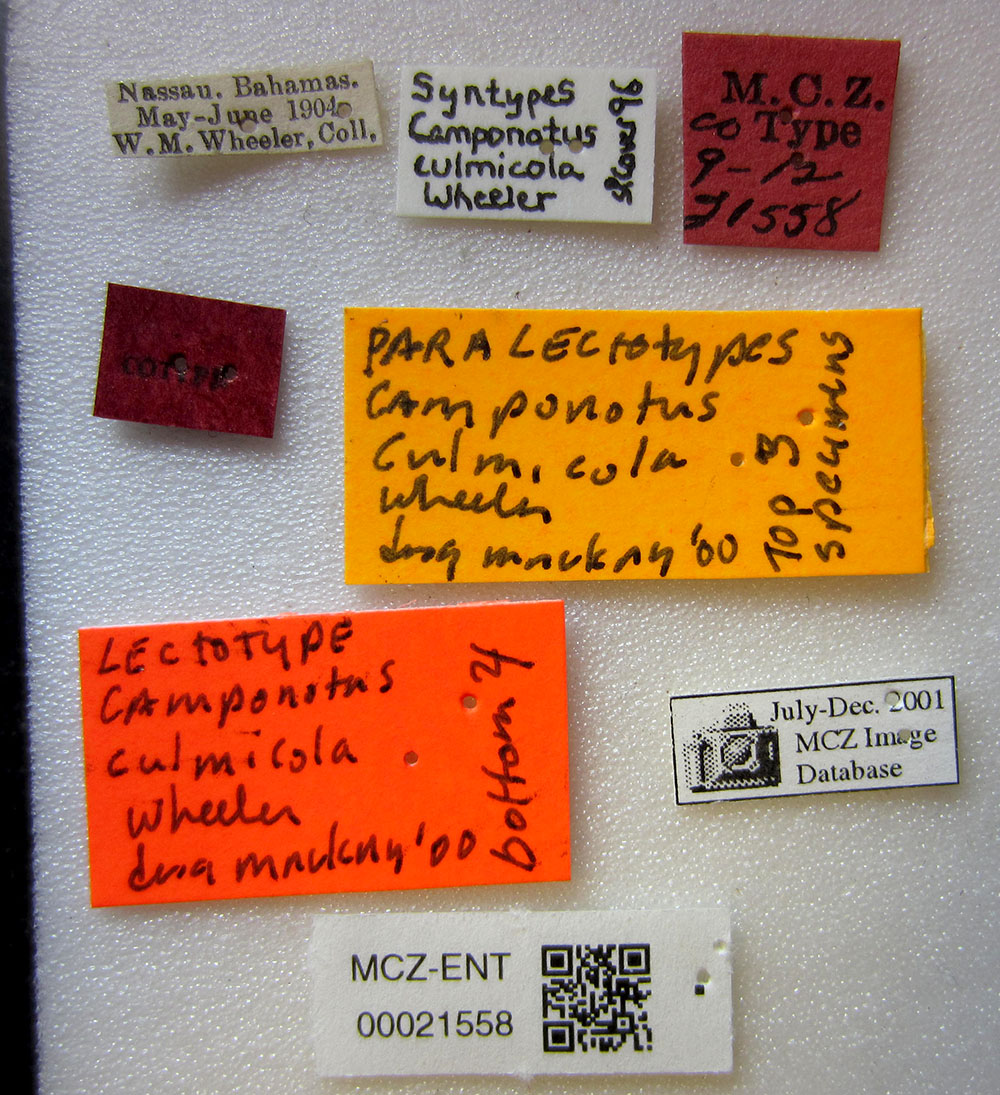 Nassau. Bahamas.
May-June 1904
W. M. Wheeler, Coll.
Syntypes
Camponotus
culmicola
Wheeler
SPCover 96
M. C. Z.
co Type
9-12
21558
COTYPE
PARALECTOtypes
CAmponotus
Culmicola
wheeler
'00
Top 3
specimens
LECTOTYPE
CAmponotus
culmicola
wheeler
'00
bottom
July-Dec. 2001
MCZ Image
Database
MCZ-ENT
00021558